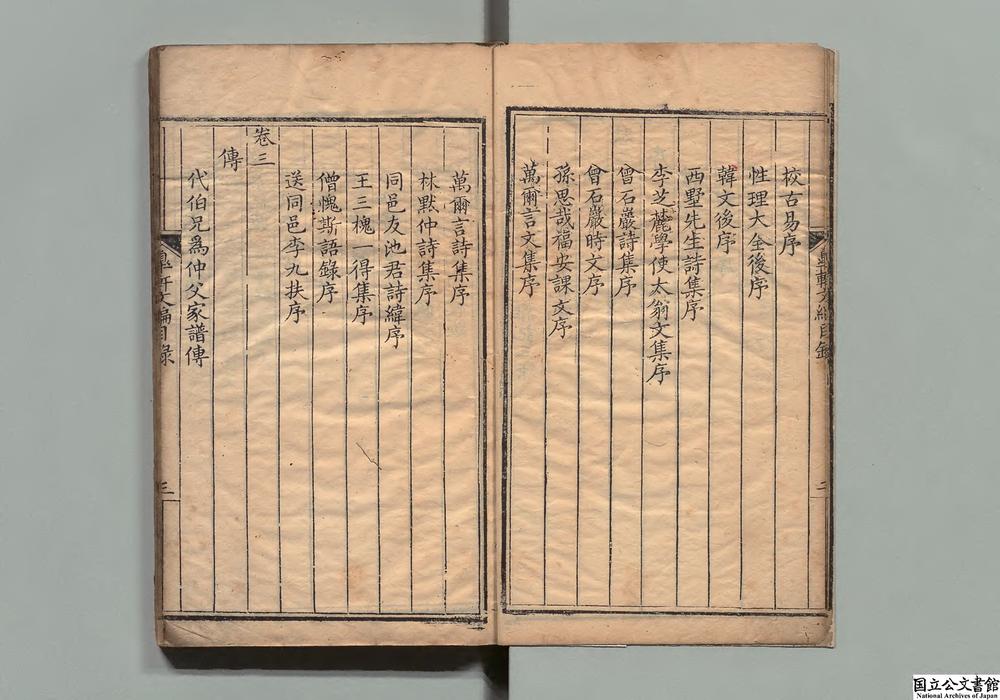 校古易序
性理大全後序
韓文後序
西墅先生詩集序
李芝麓學使太翁文集序
曾石巖詩集序
曾石巖時文序
孫思哉福安課文序
萬爾言文集序
二
萬爾言詩集序
林默仲詩集序
同邑友池君詩緯序
王三槐一得集序
僧愧斯語錄序
送同邑李九扶序
卷三
傳
代伯兄爲仲父家譜傳
文編目錄
三
国立公文書館
National Archives of Japan